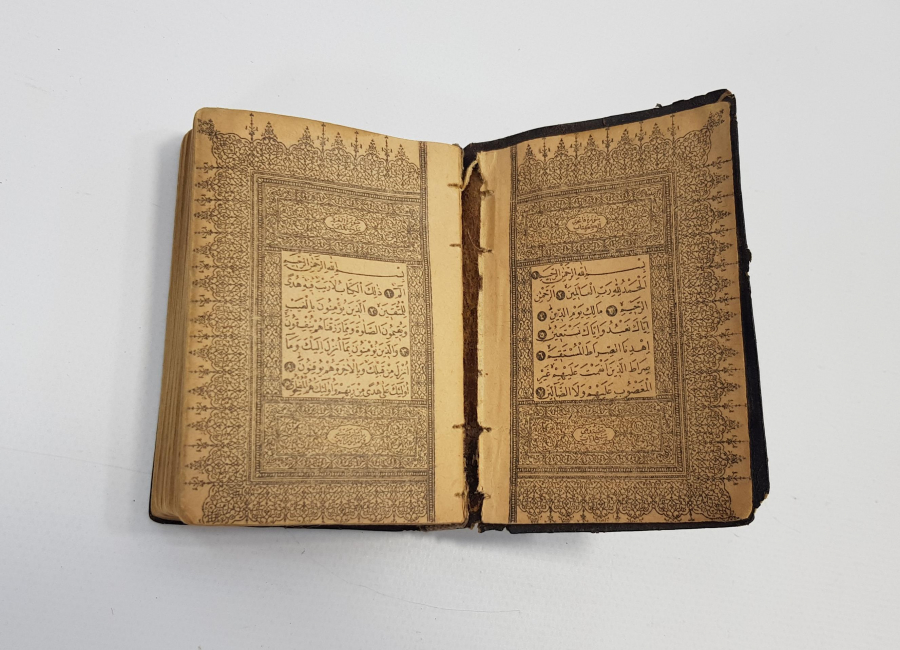 بِسْمِ اللهِ الرَّحْمٰنِ الرَّحِيمِ ١
اَلْحَمْدُ لِلّٰهِ رَبِّ الْعَالَمِينَ ٢ اَلرَّحْمٰنِ
الرَّحِيمِ ٣ مَالِكِ يَوْمِ الدِّينِ ٤
اِيَّاكَ نَعْبُدُ وَاِيَّاكَ نَسْتَعِينُ ٥
اِهْدِنَا الصِّرَاطَ الْمُسْتَقِيمَ ٦
صِرَاطَ الَّذِينَ اَنْعَمْتَ عَلَيْهِمْ غَيْرِ
الْمَغْضُوبِ عَلَيْهِمْ وَلَا الضَّالِّينَ ٧
بِسْمِ اللهِ الرَّحْمٰنِ الرَّحِيمِ
الم ١ ذٰلِكَ الْكِتَابُ لَا رَيْبَ فِيهِ هُدًى
لِلْمُتَّقِينَ ٢ اَلَّذِينَ يُؤْمِنُونَ بِالْغَيْبِ
وَيُقِيمُونَ الصَّلٰوةَ وَمِمَّا رَزَقْنَاهُمْ يُنْفِقُونَ
٣ وَالَّذِينَ يُؤْمِنُونَ بِمَا اُنْزِلَ اِلَيْكَ وَمَا
اُنْزِلَ مِنْ قَبْلِكَ وَبِالْاٰخِرَةِ هُمْ يُوقِنُونَ ٤
اُولٰئِكَ عَلٰى هُدًى مِنْ رَبِّهِمْ وَاُولٰئِكَ هُمُ الْمُفْلِحُونَ ٥